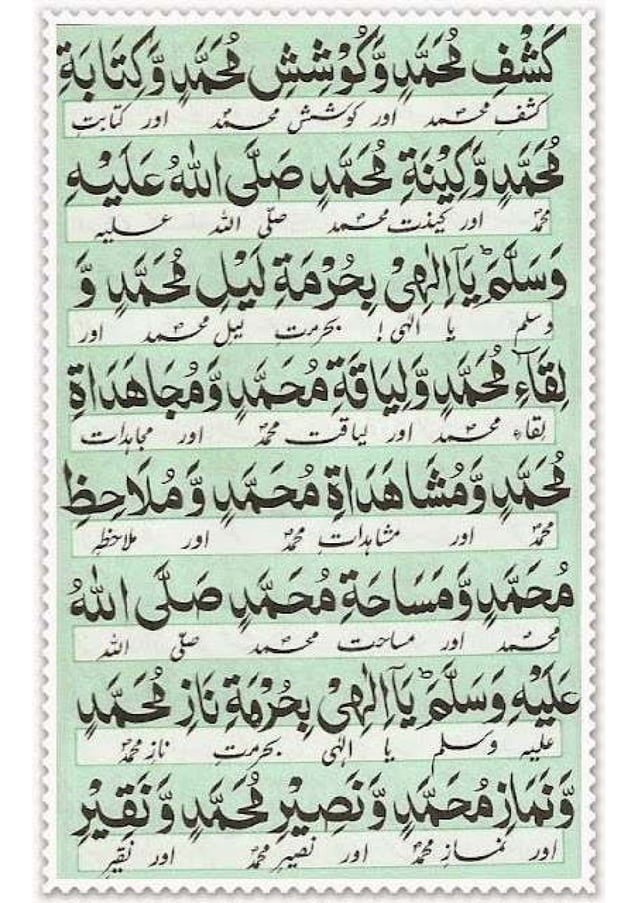 كَشْفِ مُحَمَّدٍ وَّكُوْشِشِ مُحَمَّدٍ وَّكِتَابَةِ
کشف محمدؐ اور کوشش محمدؐ اور کتابت
مُحَمَّدٍ وَّكِيْنَةِ مُحَمَّدٍ صَلَّى اللهُ عَلَيْهِ
محمدؐ اور کینت محمدؐ صلی اللہ علیہ
وَسَلَّمَ ؕ يَآ اِلٰهِيْ بِحُرْمَةِ لَيْلِ مُحَمَّدٍ وَّ
وسلم یا الٰہی ! بحرمت لیل محمدؐ اور
لِقَآءِ مُحَمَّدٍ وَّلِيَاقَةِ مُحَمَّدٍ وَّمُجَاهَدَاةِ
لقاء محمدؐ اور لیاقت محمدؐ اور مجاہدات
مُحَمَّدٍ وَّمُشَاهَدَاةِ مُحَمَّدٍ وَّمُلَاحِظِ
محمدؐ اور مشاہدات محمدؐ اور ملاحظہ
مُحَمَّدٍ وَّمَسَاحَةِ مُحَمَّدٍ صَلَّى اللهُ
محمدؐ اور مساحت محمدؐ صلی اللہ
عَلَيْهِ وَسَلَّمَ ؕ يَآ اِلٰهِيْ بِحُرْمَةِ نَازِ مُحَمَّدٍ
علیہ وسلم یا الٰہی بحرمت نازِ محمدؐ
وَّنَمَازِ مُحَمَّدٍ وَّنَصِيْرِ مُحَمَّدٍ وَّنَقِيْرِ
اور نمازِ محمدؐ اور نصیرِ محمدؐ اور نقیرِ